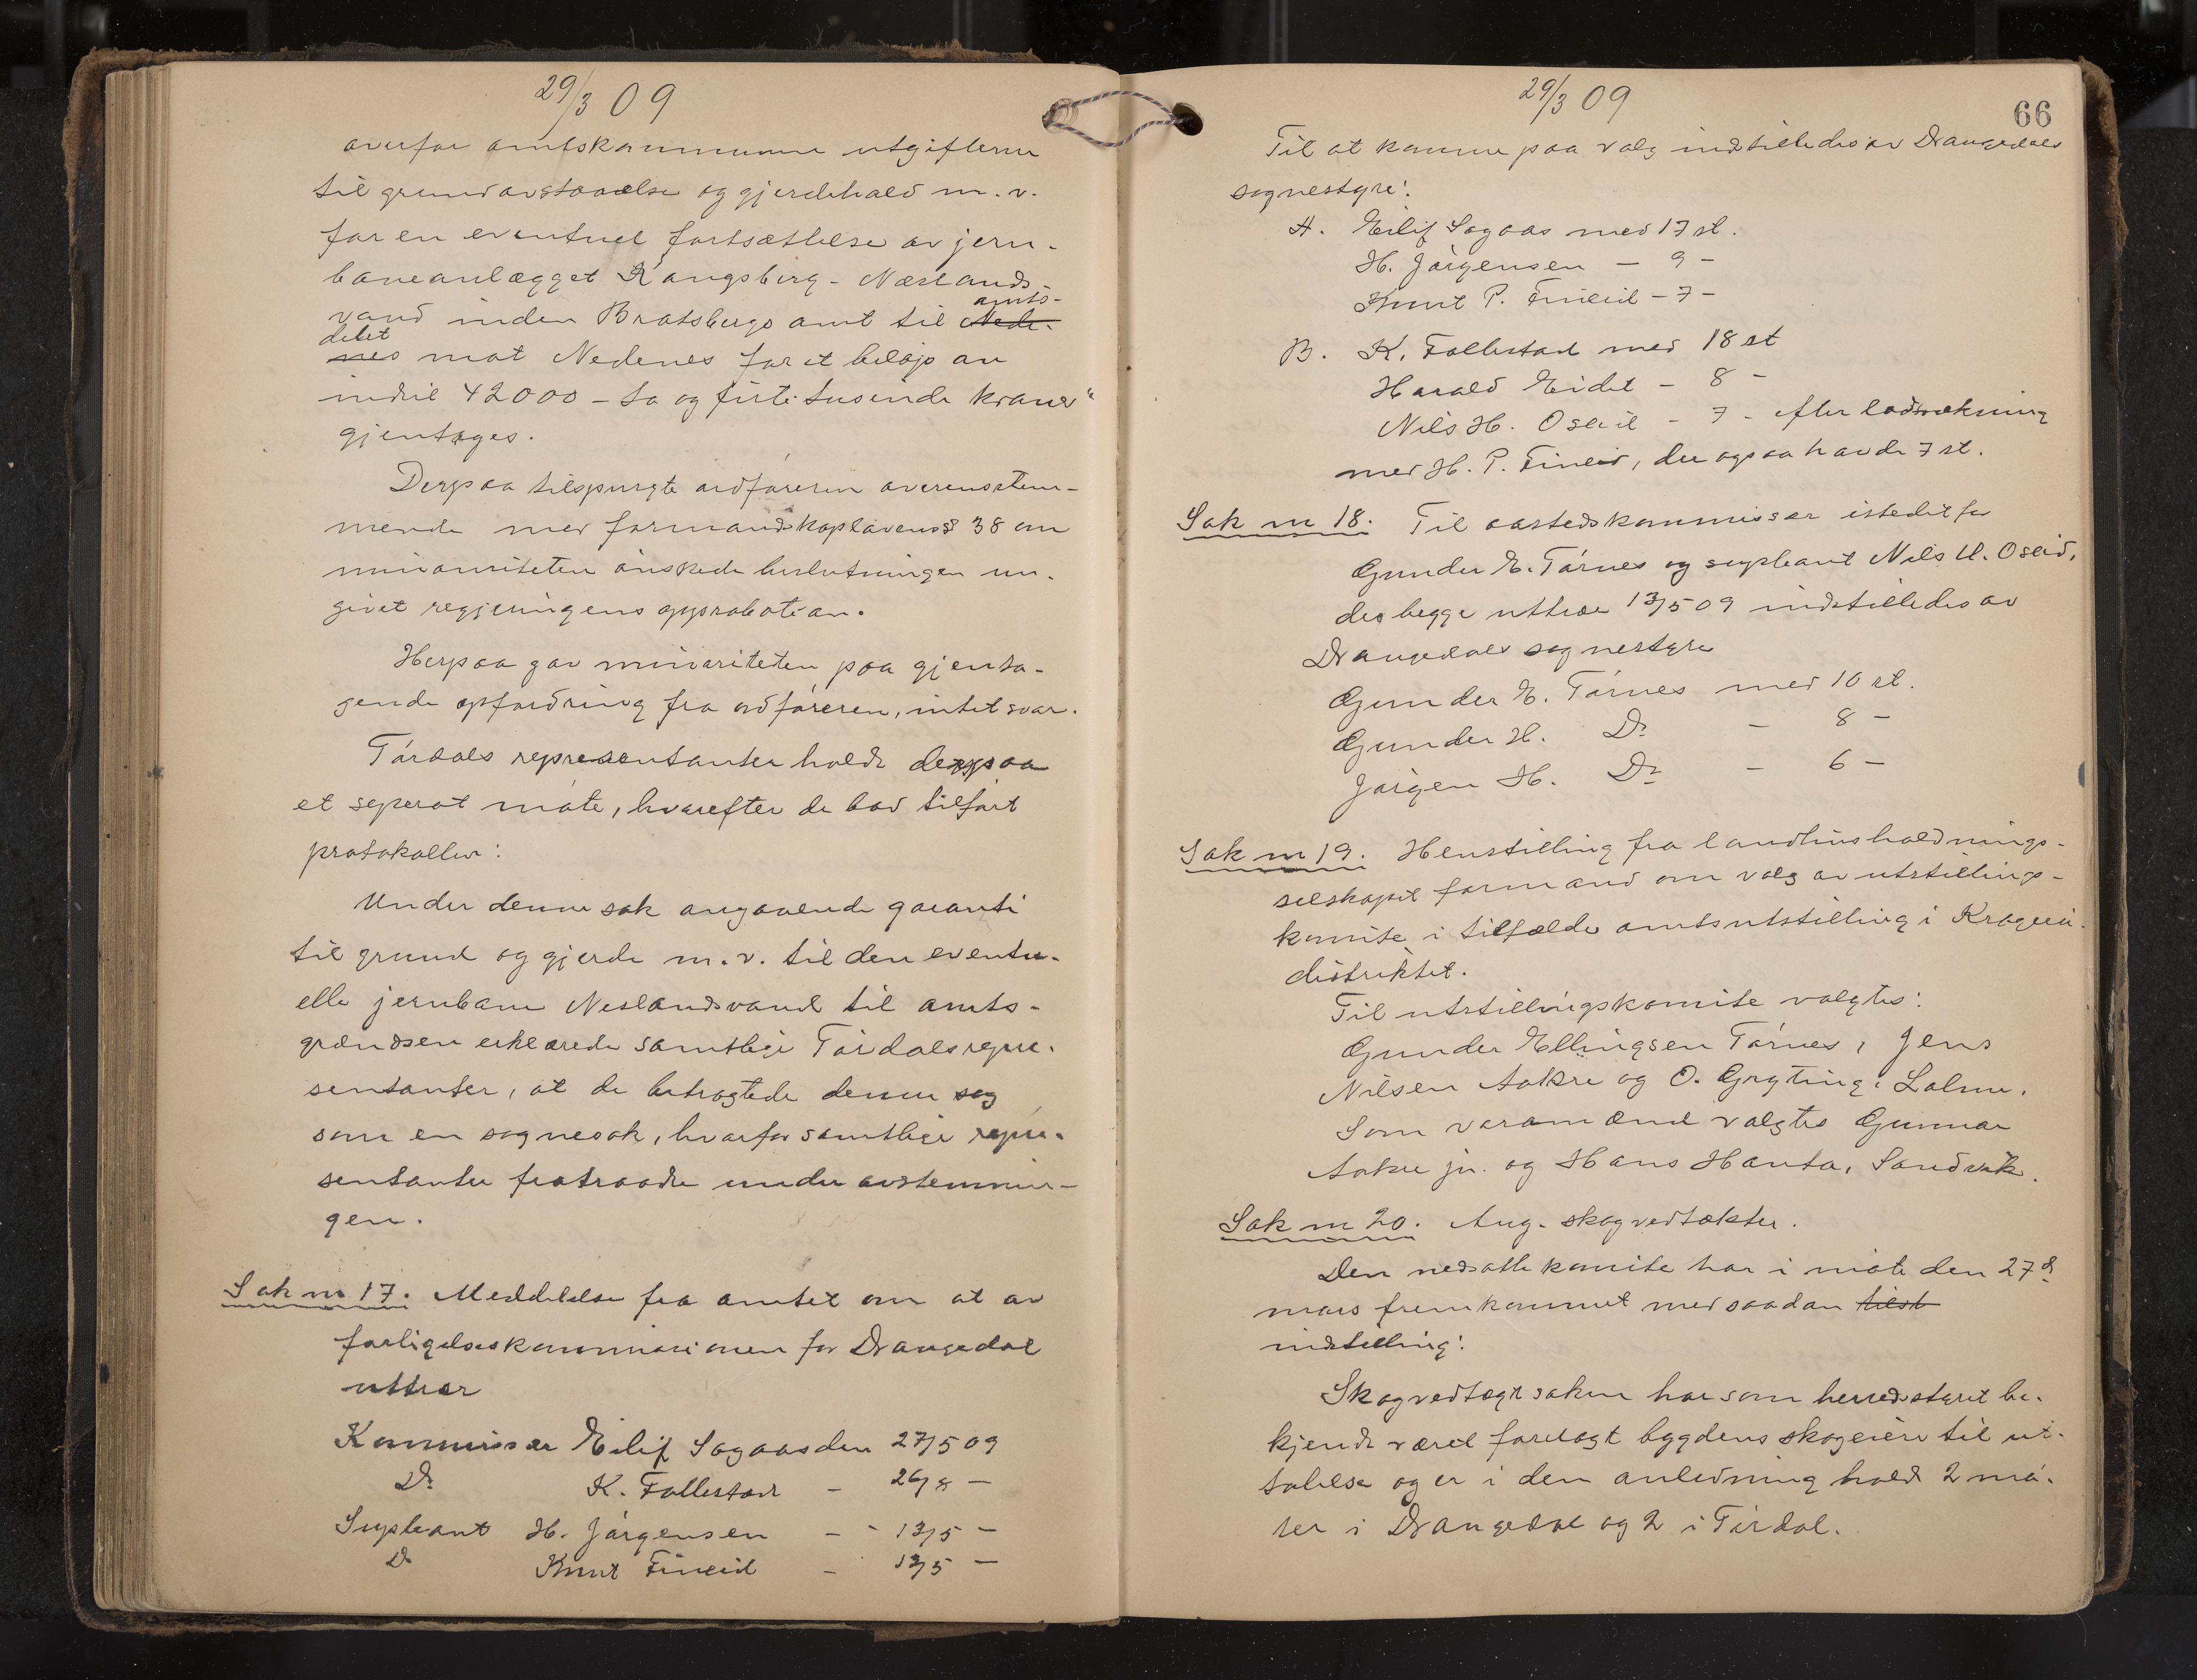 29/3 09
overfor amtskommunen utgifterne
til grundavstaaelse og gjerdehald m.v.
for en eventuel fortsættelse av jern-
baneanlægget Kongsberg - Næslands-
vand inden Bratsbergs amt til Nede- amts-
nes delet mot Nedenes for et beløp av
indtil 42000 - to og firti tusinde kroner"
gjentages.
Derpaa tilspurgte ordføreren overensstem-
mende med formandskapslovens § 38 om
minoriteten ønskede beslutningen un-
givet regjeringens approbation.
Herpaa gav minoriteten, paa gjenta-
gende opfordring fra ordføreren, intet svar.
Tørdals representanter holdt derpaa
et seperat møte, hvorefter de bad tilført
protokollen:
Under denne sak angaaende garanti
til grund og gjerde m.v. til den eventu-
elle jernbane Neslandsvand til amts-
grændsen erklærede samtlige Tørdals repre-
sentanter, at de betragtede denne sag
som en sognesak, hvorfor samtlige repre-
sentanter fratraadte under avstemnin-
gen.
Sak nr 17. Meddelelse fra amtet om at av
forligelseskommissionen for Drangedal
uttrær
Kommissær Eilif Sogaas den 27/5 09
Do K. Follestad - 26/8 -
Supleant H. Jørgensen - - 13/5 -
Do Knut Fineid - 13/5 -
29/3 09
66
Til at komme paa valg indstilledes av Drangedals
sognestyre:
A. Eilif Sogaas med 17 st.
H. Jørgensen - 9 -
Knut P. Fineid - 7 -
B. K. Follestad med 18 st
Harald Eidet - 8 -
Nils H. Oseid - 7 - efter lodtrækning
med H. P. Fineid, der ogsaa havde 7 st.
Sak nr 18. Til aastedskommissær istedetfor
Gunder E. Tørnes og supleant Nils H. Oseid,
der begge uttrær 13/5 09 indstilledes av
Drangedals sognestyre
Gunder E. Tørnes med 10 st.
Gunder H. Do - 8 -
Jørgen H. Do - 6 -
Sak nr 19. Henstilling fra landhusholdnings-
selskapet formand om valg av utstillings-
komite i tilfælde amtsutstilling i Kragerø-
distriktet.
Til utstillingskomite valgtes:
Gunder Ellingsen Tørnes, Jens
Nilsen Aakre og O. Gryting, Lolme.
Som varamænd valgtes Gunnar
Aakre jr. og Hans Hanto, Sandvik.
Sak nr 20. Ang. skogvedtækter.
Den nedsatte komite har i møte den 27de
mars fremkommet med saadan tilst
indstilling:
Skogvedtægtsaken har som herredsstyret be-
kjendt været forelagt bygdens skogeiere til ut-
talelse og er i den anledning holdt 2 mø-
ter i Drangedal og 2 i Tørdal.